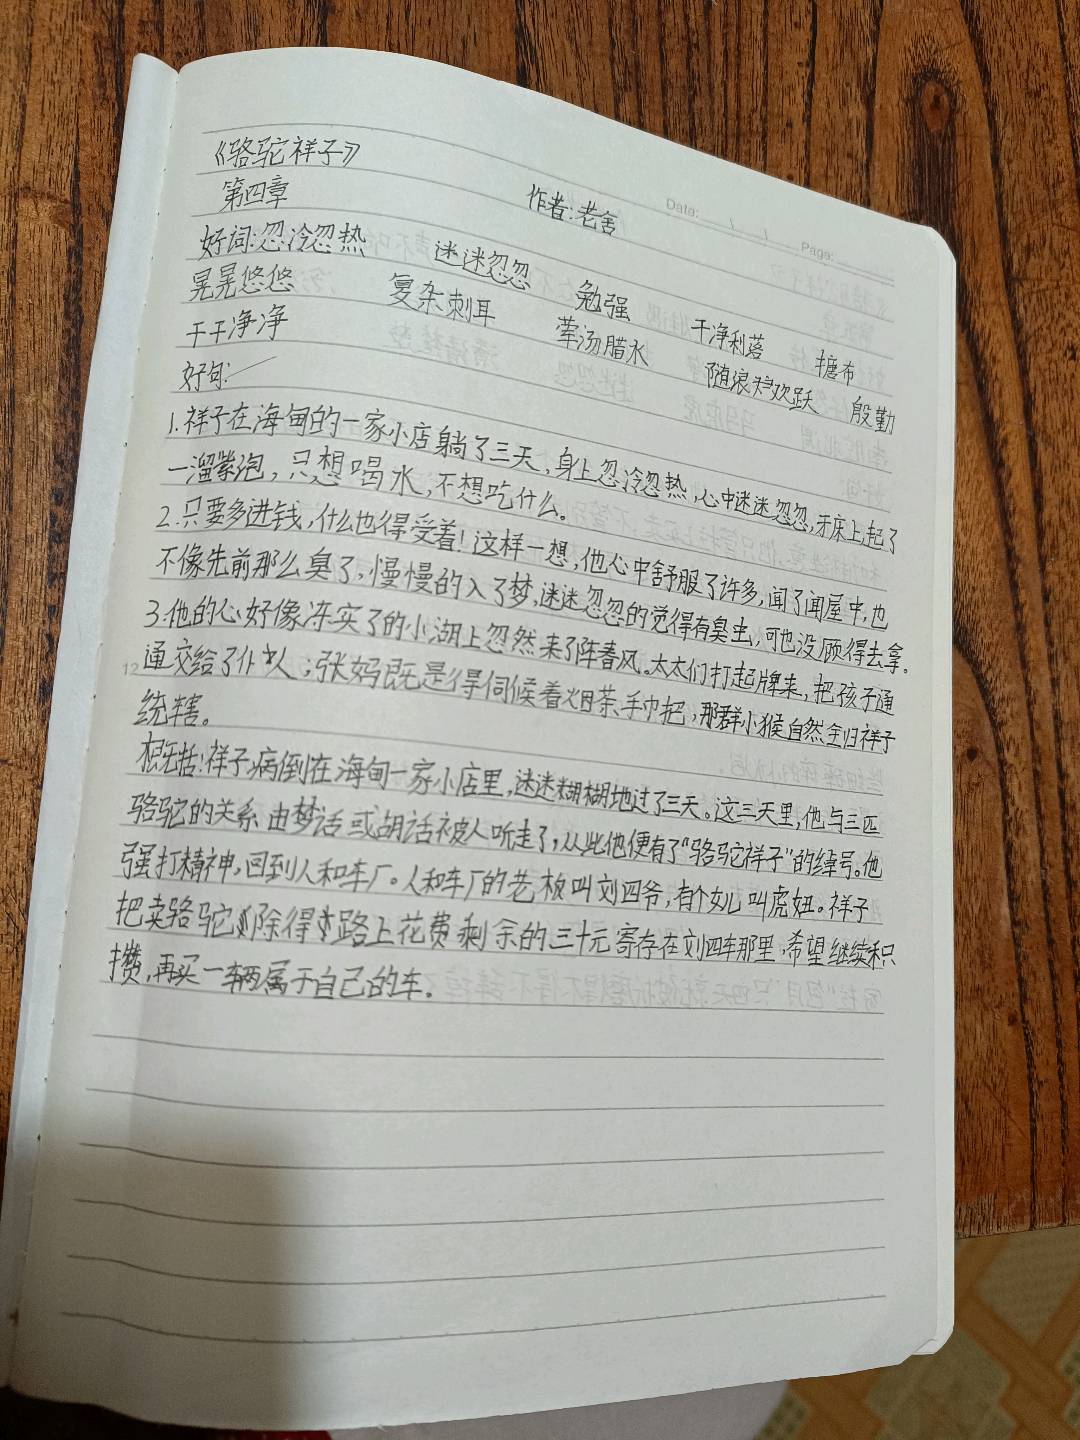 《骆驼祥子》
Date: / / Page:
第四章 作者:老舍
好词:忽冷忽热 迷迷忽忽 勉强 干净利落 搪布
晃晃悠悠 复杂刺耳 荤汤腊水 随浪欢跃 殷勤
干干净净
好句:
1.祥子在海甸的一家小店躺了三天,身上忽冷忽热,心中迷迷忽忽,牙床上起了
一溜紫泡,只想喝水,不想吃什么。
2.只要多进钱,什么也得受着!这样一想,他心中舒服了许多,闻了闻屋中,也
不像先前那么臭了,慢慢的入了梦,迷迷忽忽的觉得有臭虫,可也没顾得去拿。
3.他的心好像冻实了的小湖上忽然来了阵春风。太太们打起牌来,把孩子通
通交给了仆人;张妈既是得伺候着烟茶手巾把,那群小猴自然全归祥子
统辖。
概括:祥子病倒在海甸一家小店里,迷迷糊糊地过了三天。这三天里,他与三匹
骆驼的关系由梦话或胡话被人听走了,从此他便有了“骆驼祥子”的绰号。他
强打精神,回到人和车厂。人和车厂的老板叫刘四爷,有个女儿叫虎妞。祥子
把卖骆驼除得路上花费剩余的三十元寄存在刘四车那里,希望继续积
攒,再买一辆属于自己的车.
12